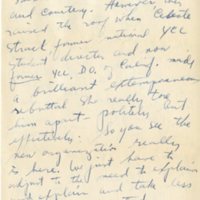 and courtesy. However Celeste
raised the roof when Celeste
Strack, former national YCL
student director and now
former YCL D.O. of Calif. made
a brilliant extemporaneous
rebuttal. She really tore
him apart - politely but
effectively. So you see the
new organization really
is here. We just have to
adjust to the need to explain
and explain and take less